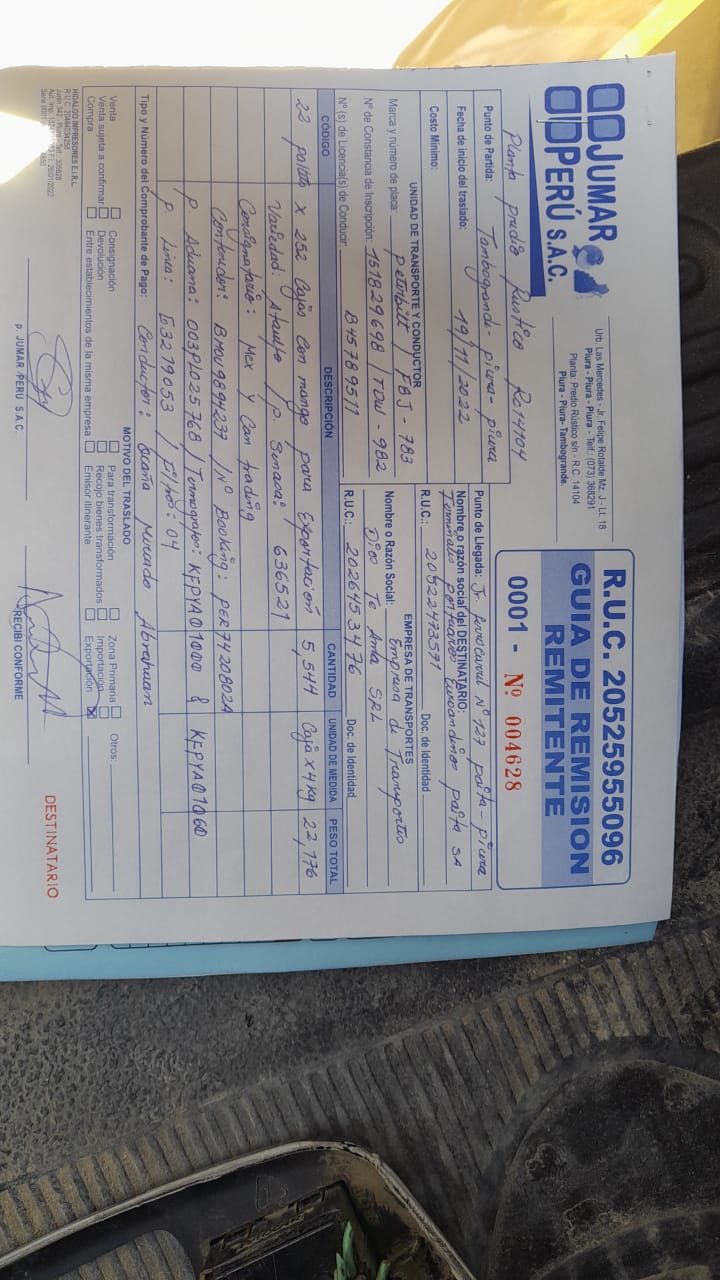 JUMAR
PERÚ S.A.C.
Urb. Las Mercedes - Jr. Felipe Rotalde Mz. J - Lt. 18
Piura - Piura - Piura - Telf.: (073) 368291
Planta: Predio Rústico s/n - R.C. 14104
Piura - Piura- Tambogrande.
R.U.C. 20525955096
GUIA DE REMISION
REMITENTE
0001 - Nº 004628
Planta predio Rustico Rc14104
Punto de Partida: Tambogrande-piura-piura
Fecha de inicio del traslado: 19/11/2022
Costo Mínimo:
Punto de Llegada: Nº 127 paita-piura
Nombre o razón social del DESTINATARIO:
Terminales Portuarios Euroandinos paita SA
R.U.C.: 20522473571 Doc. de Identidad
UNIDAD DE TRANSPORTE Y CONDUCTOR
Marca y número de placa: peterbilt / FBJ-783
Nº de Constancia de Inscripción: 151829698 / TDW-982
Nº (s) de Licencia(s) de Conducir: B45789511
EMPRESA DE TRANSPORTES
Nombre o Razón Social: Empresa de Transportes
Dios Te Ama SRL
R.U.C.: 20264534 76 Doc. de Identidad
CÓDIGO DESCRIPCIÓN CANTIDAD UNIDAD DE MEDIDA PESO TOTAL
22 palets x 252 Cajas con mango para Exportación 5,544 Caja x 4kg 22,176
Variedad: Ataulfo / p. Senasa: 636521
Consignatario: Mex y Can trading
Contenedor: BMOU9894237 / Nº Booking: PER7420802A
p Aduana: 003PL025768 / Termografo: KFPYA01000 & KFPYA01060
p. Linea: E3219053 / Filtros: 04
Tipo y Número del Comprobante de Pago: Conductor: Ocaña Mercado Abrahuam
MOTIVO DEL TRASLADO
Venta Consignación Para transformación Zona Primaria Otros:
Venta sujeta a confirmar Devolución Recojo bienes transformados Importación
Compra Entre establecimientos de la misma empresa Emisor itinerante Exportación X
HIDALGO IMPRESORES E.I.R.L.
p. JUMAR PERU S.A.C.
RECIBI CONFORME
DESTINATARIO